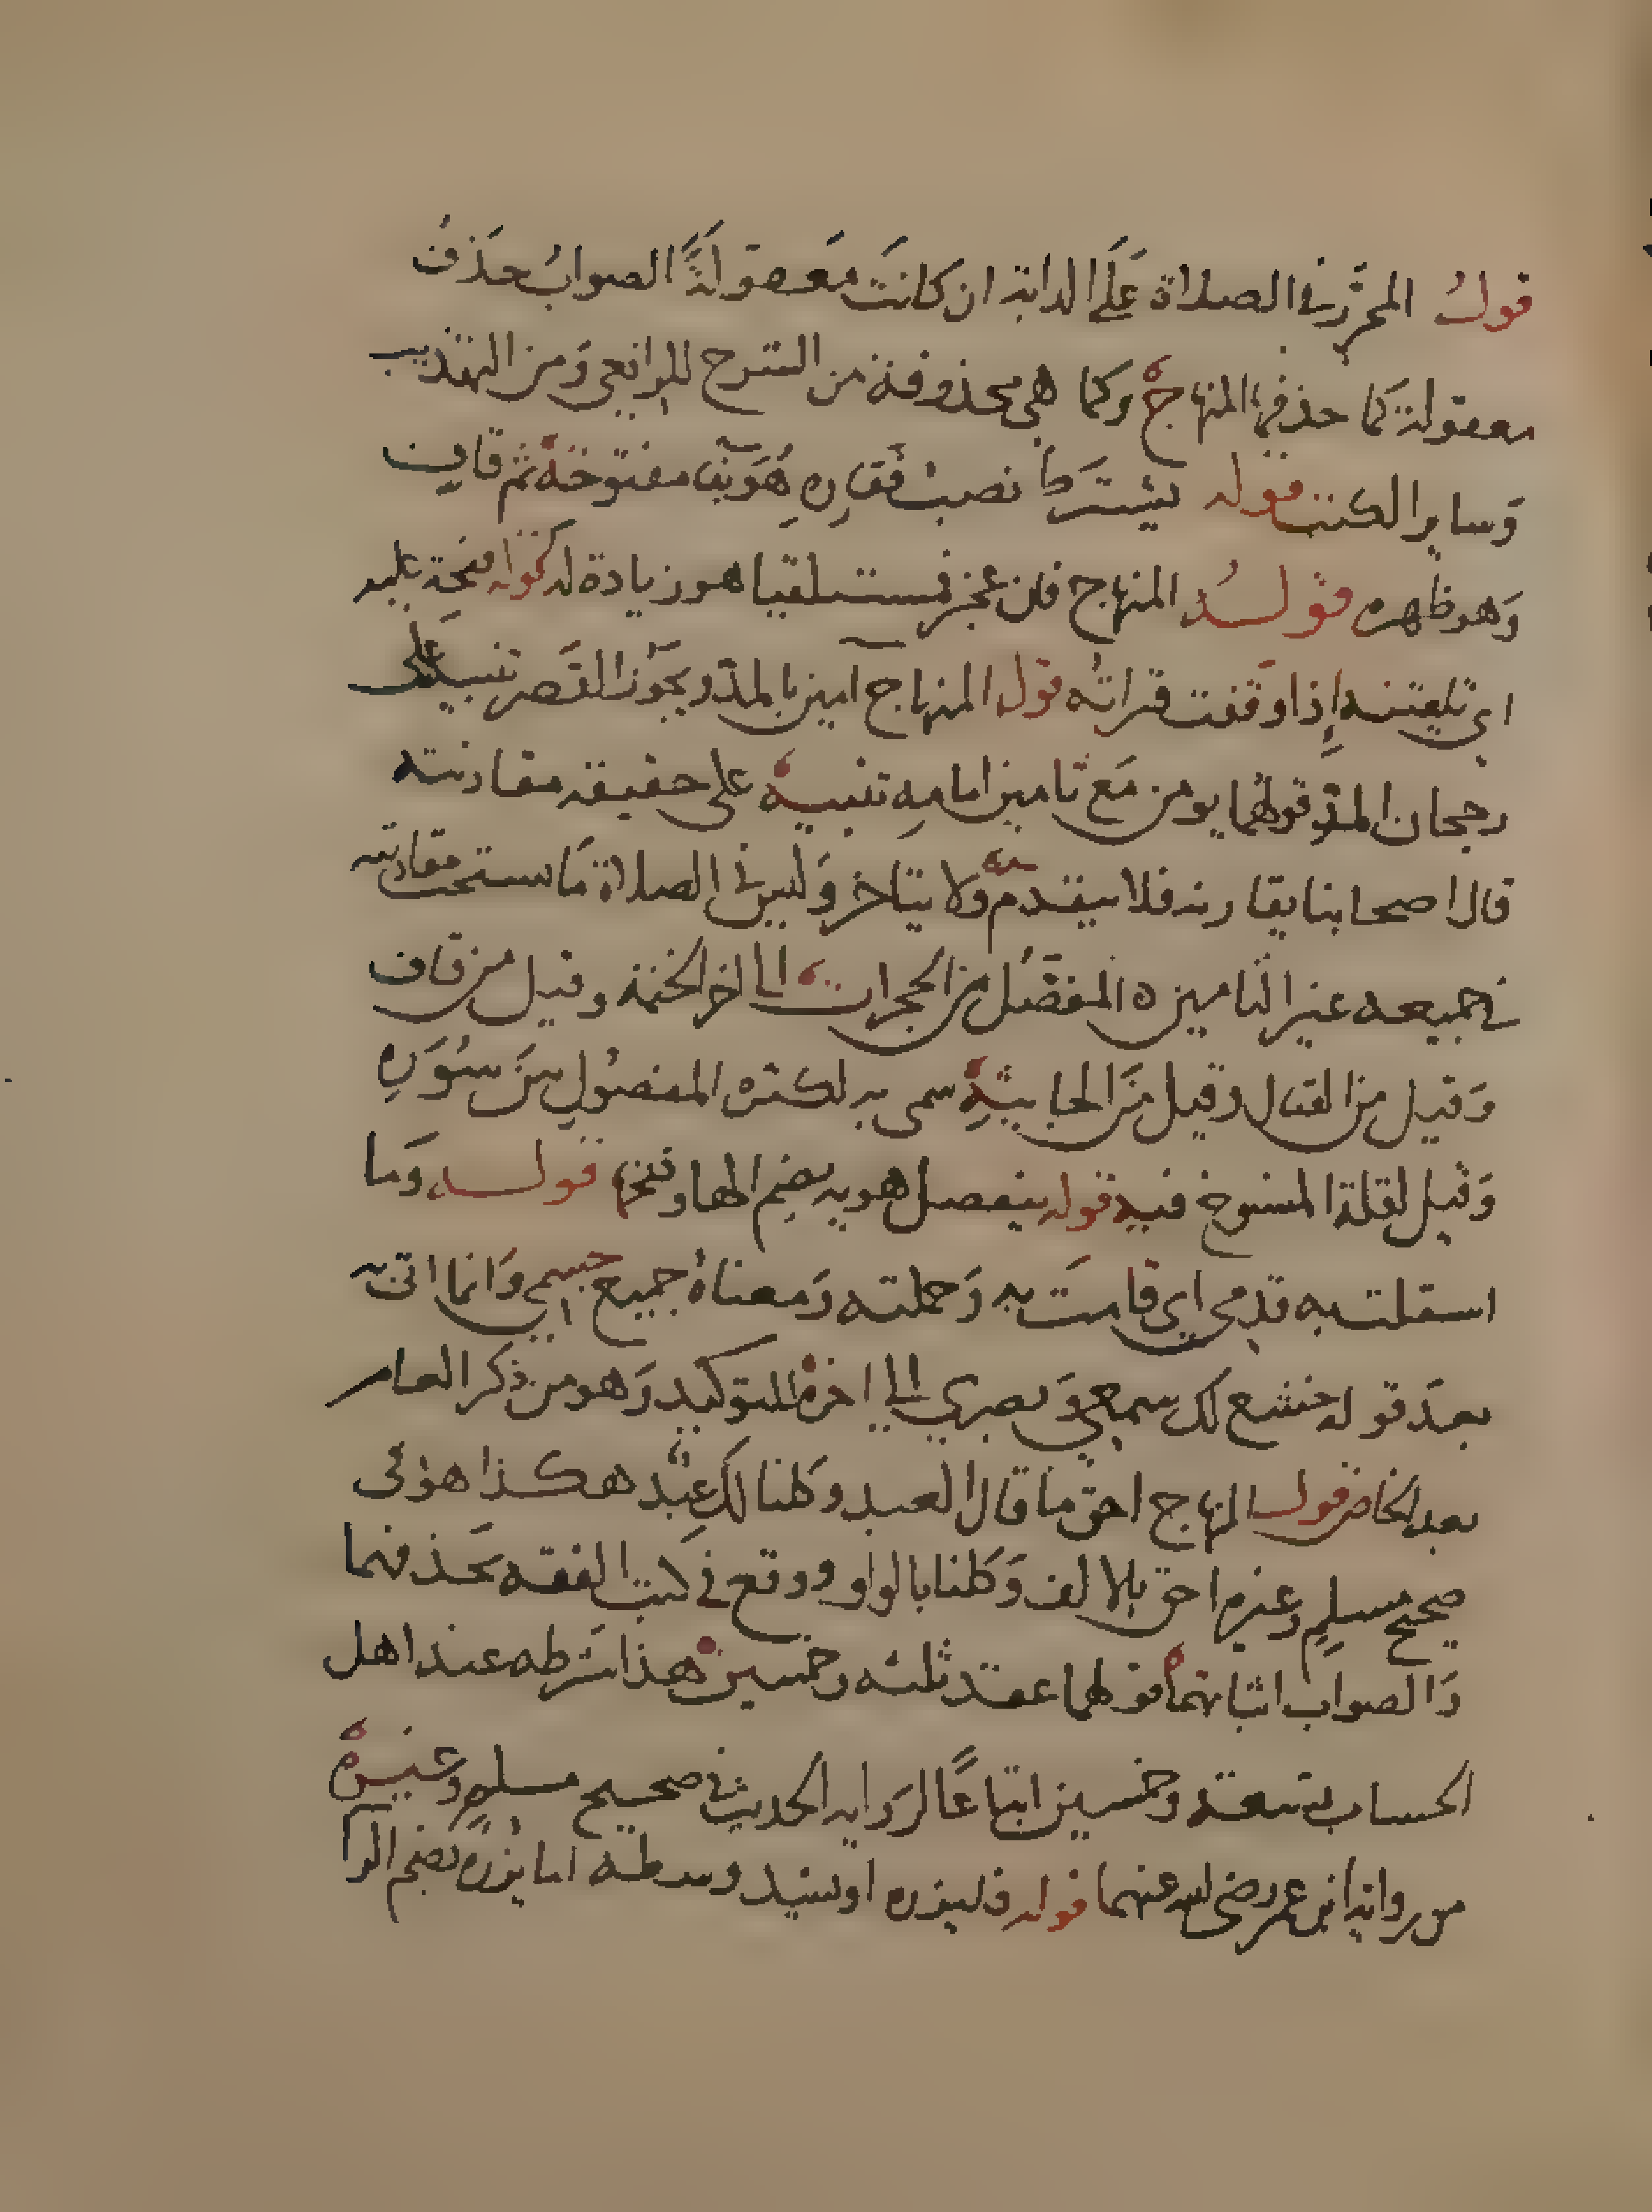 قولُ المحرَّر في الصلاة عَلَى الدابة ان كانتَ مَعقولَةً الصوابُ حذف
معقولة كما حذفها المنهاج وكما هي محذوفة من الشرح للرافعي وَمن التهذيب
وَساير الكتب قوله يشترط نصب فقاره هُوَ بفآ مفتوحة ثم قاف
وَهو ظهره قولُه المنهاج فان عجز فمستلقيا هو زيادة له كقوله فتحة عليه
اي تلقينه إذا وقفت قراته قول المنهاج آمين بالمدّ ويجوّز القصر تنبيه على
رجحان المدّ قولهما يومن مَع تامين امامِه تنبيه على حقيقة مقارنته
قال اصحابنا يقارنه فلا يتقدم ولا يتاخر وَليس في الصلاة مَا يستحب مقارنته
في جميعه غير التامين ه المفصّل من الحجرات الى اخر الختمة وقيل من قاف
وَقيل من القتال وقيل من الجاثية سمى به لكثرة الفصُولِ بين سُوَرِهِ
وَقيل لقلة المنسوخ فيه قوله ينفصل هويه بضم الها وفتحها قوله وَما
استقلت به قدمي اي قامَت به وَحملته وَمعناهُ جميع جسمي وَانما اتى به
بعدَ قوله خشع لك سمعي وَبصري الى اخره للتوكيد وَهو من ذكر العام
بعد الخاص قول المنهاج احق ما قال العبد وكلنا لك عبد هكذا هو في
صحيح مسلمٍ وغيره احق بالالف وَكلنا بالواو ووقع في كتب الفقه بحذفهما
وَالصواب اثباتهما قولهما عقد ثلثه وخمسين هذا شرطه عند اهل
الحساب تسعة وخمسين اتباعًا لروايه الحديث في صحيح مسلمٍ وغيره
من رواية ابن عمر رضي الله عنهما قوله فليزره او يشد وسطه اما يزُره بضم الرآ